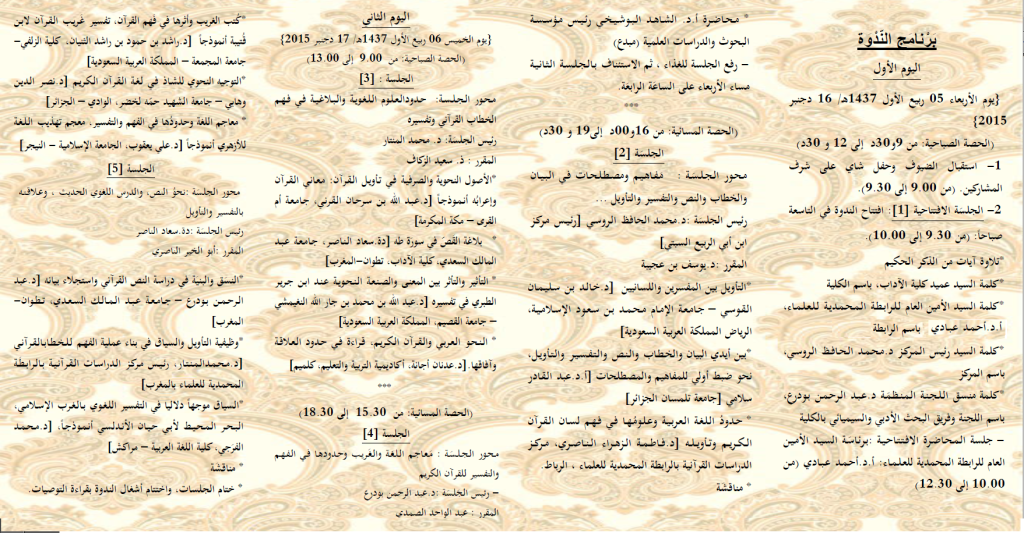 برنامج النّدوة
اليوم الأول
{يوم الأربعاء 05 ربيع الأول 1437هـ/ 16 دجنبر
2015}
(الحصة الصباحية: من 9و30د إلى 12 و 30د)
1– استقبال الضيوف وحفل شاي على شرف
المشاركين. (من 9.00 إلى 9.30).
2– الجلسة الافتتاحية [1]: افتتاح الندوة في التاسعة
صباحا: (من 9.30 إلى 10.00).
*تلاوة آيات من الذكر الحكيم
*كلمة السيد عميد كلية الآداب، باسم الكلية
*كلمة السيد الأمين العام للرابطة المحمدية للعلماء،
أ.د.أحمد عبادي باسم الرابطة
*كلمة السيد رئيس المركز د.محمد الحافظ الروسي،
باسم المركز
*كلمة منسق اللجنة المنظمة د.عبد الرحمن بودرع،
باسم اللجنة وفريق البحث الأدبي والسيميائي بالكلية
– جلسة المحاضرة الافتتاحية :برئاسة السيد الأمين
العام للرابطة المحمدية للعلماء: أ.د.أحمد عبادي (من
10.00 إلى 12.30)
* محاضرة أ.د. الشاهد البوشيخي رئيس مؤسسة
البحوث والدراسات العلمية (مبدع)
– رفع الجلسة للغذاء ، ثم الاستئناف بالجلسة الثانية
مساء الأربعاء على الساعة الرابعة.
***
(الحصة المسائية: من 16و00د إلى19 و 30د)
الجلسة [2]
محور الجلسة : مفاهيم ومصطلحات في البيان
والخطاب والنص والتفسير والتأويل ...
رئيس الجلسة :د.محمد الحافظ الروسي [رئيس مركز
ابن أبي الربيع السبتي]
المقرر :د.يوسف بن عجيبة
*التأويل بين المفسرين واللسانيين [د.خالد بن سليمان
القوسي – جامعة الإمام محمد بن سعود الإسلامية،
الرياض المملكة العربية السعودية]
*بين أيدي البيان والخطاب والنص والتفسير والتأويل،
نحو ضبط أولي للمفاهيم والمصطلحات [أ.د.عبد القادر
سلامي [جامعة تلمسان الجزائر]
* حدودُ اللغة العربية وعلومُها في فهم لسان القرآن
الكريم وتأويله [د.فاطمة الزهراء الناصري، مركز
الدراسات القرآنية بالرابطة المحمدية للعلماء ، الرباط.
* مناقشة
اليوم الثاني
{يوم الخميس 06 ربيع الأول 1437هـ/ 17 دجنبر 2015}
(الحصة الصباحية: من 9.00 إلى 13.00)
الجلسة : [3]
محور الجلسة: حدودالعلوم اللغوية والبلاغية في فهم
الخطاب القرآني وتفسيره
رئيس الجلسة: د. محمد المنتار
المقرر : ذ. سعيد الزكاف
*الأصول النحوية والصرفية في تأويل القرآن: معاني القرآن
وإعرابُه أنموذجاً [د.عبد الله بن سرحان القرني، جامعة أم
القرى – مكة المكرمة]
* بلاغة القصّ في سورة طه [دة.سعاد الناصر، جامعة عبد
المالك السعدي، كلية الآداب، تطوان–المغرب]
* التأثير والتأثر بين المعنى والصنعة النحوية عند ابن جرير
الطبري في تفسيره [د.عبد الله بن محمد بن جار الله النغيمشي
– جامعة القصيم، المملكة العربية السعودية]
* النحو العربي والقرآن الكريم، قراءة في حدود العلاقة
وآفاقها.[د.عدنان أجانة، أكاديمية التربية والتعليم، كلميم]
***
(الحصة المسائية: من 15.30 إلى 18.30)
الجلسة [4]
محور الجلسة : معاجم اللغة والغريب وحدودها في الفهم
والتفسير للقرآن الكريم
– رئيس الجلسة :د.عبد الرحمن بودرع
المقرر : عبد الواحد الصمدي
*كُتب الغريب وأثرها في فَهم القرآن، تفسير غريب القرآن لابن
قُتيبة أنموذجاً [د.راشد بن حمود بن راشد الثنيان، كلية الزلفي–
جامعة المجمعة – المملكة العربية السعودية]
*التوجيه النحوي للشاذ في لغة القرآن الكريم [د.نصر الدين
وهابي – جامعة الشهيد حمّه لخضر، الوادي – الجزائر]
* معاجم اللغة وحدودُها في الفهم والتفسير، معجم تهذيب اللغة
للأزهري أنموذجاً [د.علي يعقوب، الجامعة الإسلامية – النيجر]
الجلسة [5]
محور الجلسة :نحوُ النص، والدرس اللغوي الحديث ، وعلاقته
بالتفسير والتأويل
رئيس الجلسة :دة.سعاد الناصر
المقرر :أبو الخير الناصري
*النسق والبنية في دراسة النص القرآني واستجلاء بيانه [د.عبد
الرحمن بودرع – جامعة عبد المالك السعدي، تطوان–
المغرب]
*وظيفية التأويل والسياق في بناء عملية الفهم للخطابالقرآني
[د.محمدالمنتار، رئيس مركز الدراسات القرآنية بالرابطة
المحمدية للعلماء بالمغرب]
*السياق موجهاً دلاليا في التفسير اللغوي بالغرب الإسلامي،
البحر المحيط لأبي حيان الأندلسي أنموذجاً، [د.محمد
الفرجي، كلية اللغة العربية – مراكش]
* مناقشة
* ختام الجلسات، واختتام أشغال الندوة بقراءة التوصيات.